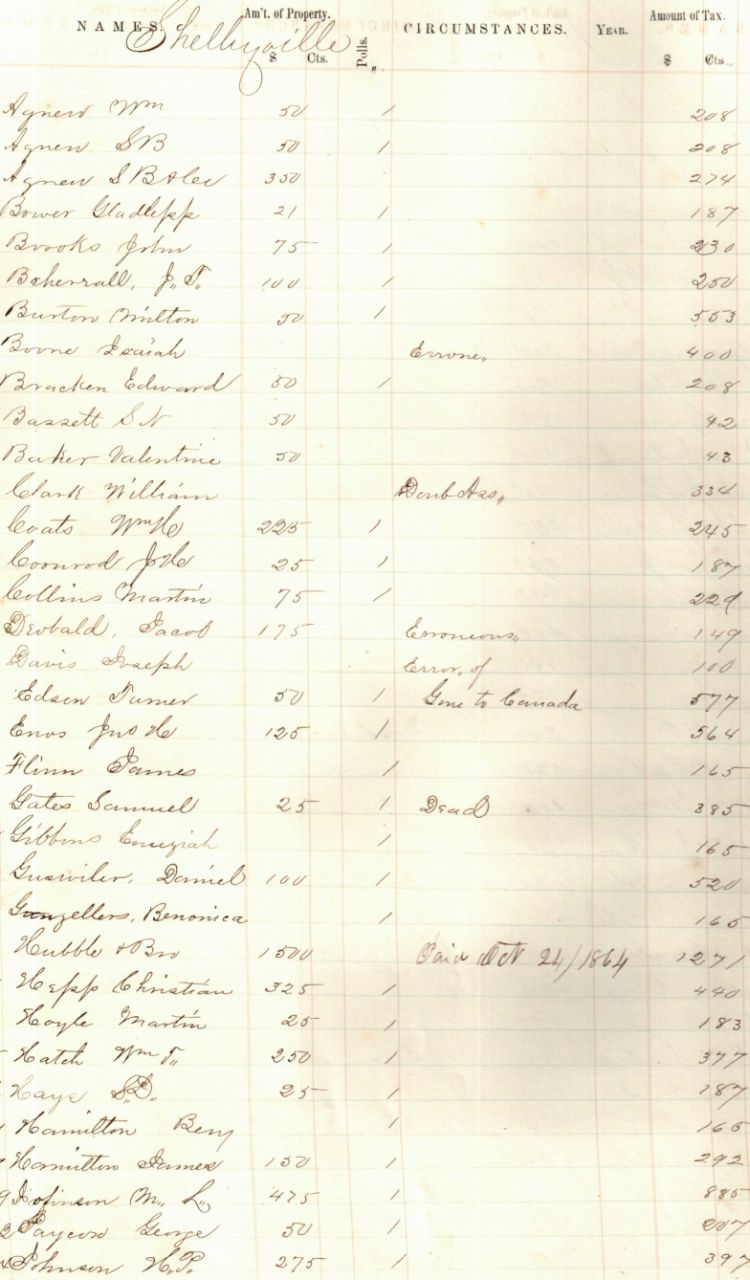 NAMES. Shelbyville Am't. of Property. $ Cts. Polls. CIRCUMSTANCES. YEAR. Amount of Tax. $ Cts.
Agnew Wm 50 1 208
Agnew S B 50 1 208
Agnew S B & Lee 350 274
Bower Gladlepp 21 1 187
Brooks John 75 1 230
Beherrall, J. T. 100 1 250
Burton Milton 50 1 553
Boone Isaiah Errone. 400
Bracken Edward 50 1 208
Bassett S N 50 42
Baker Valentine 50 43
Clark William Doub Ass,, 334
Coats Wm H 225 1 245
Cornrod J H 25 1 187
Collins Martin 75 1 229
Deobald, Jacob 175 Erroneous,, 149
Davis Joseph Error, of 100
Edsen Turner 50 1 Gone to Canada 577
Enos Jno H 125 1 564
Flinn James 1 165
Gates Samuel 25 1 Dead 385
Gibbons 1 165
Guswiler, Daniel 100 1 520
Benonica 1 165
Hubble & Bro 1500 Paid Oct 24/1864 1271
Hepp Christian 325 1 440
Hoyle Martin 25 1 183
Hatch Wm T,, 250 1 377
Hays S.D. 25 1 187
Hamilton Benj 1 165
Hamilton James 150 1 292
M,, L,, 475 1 885
Jaycox George 50 1 207
Johnson H.P. 275 1 397